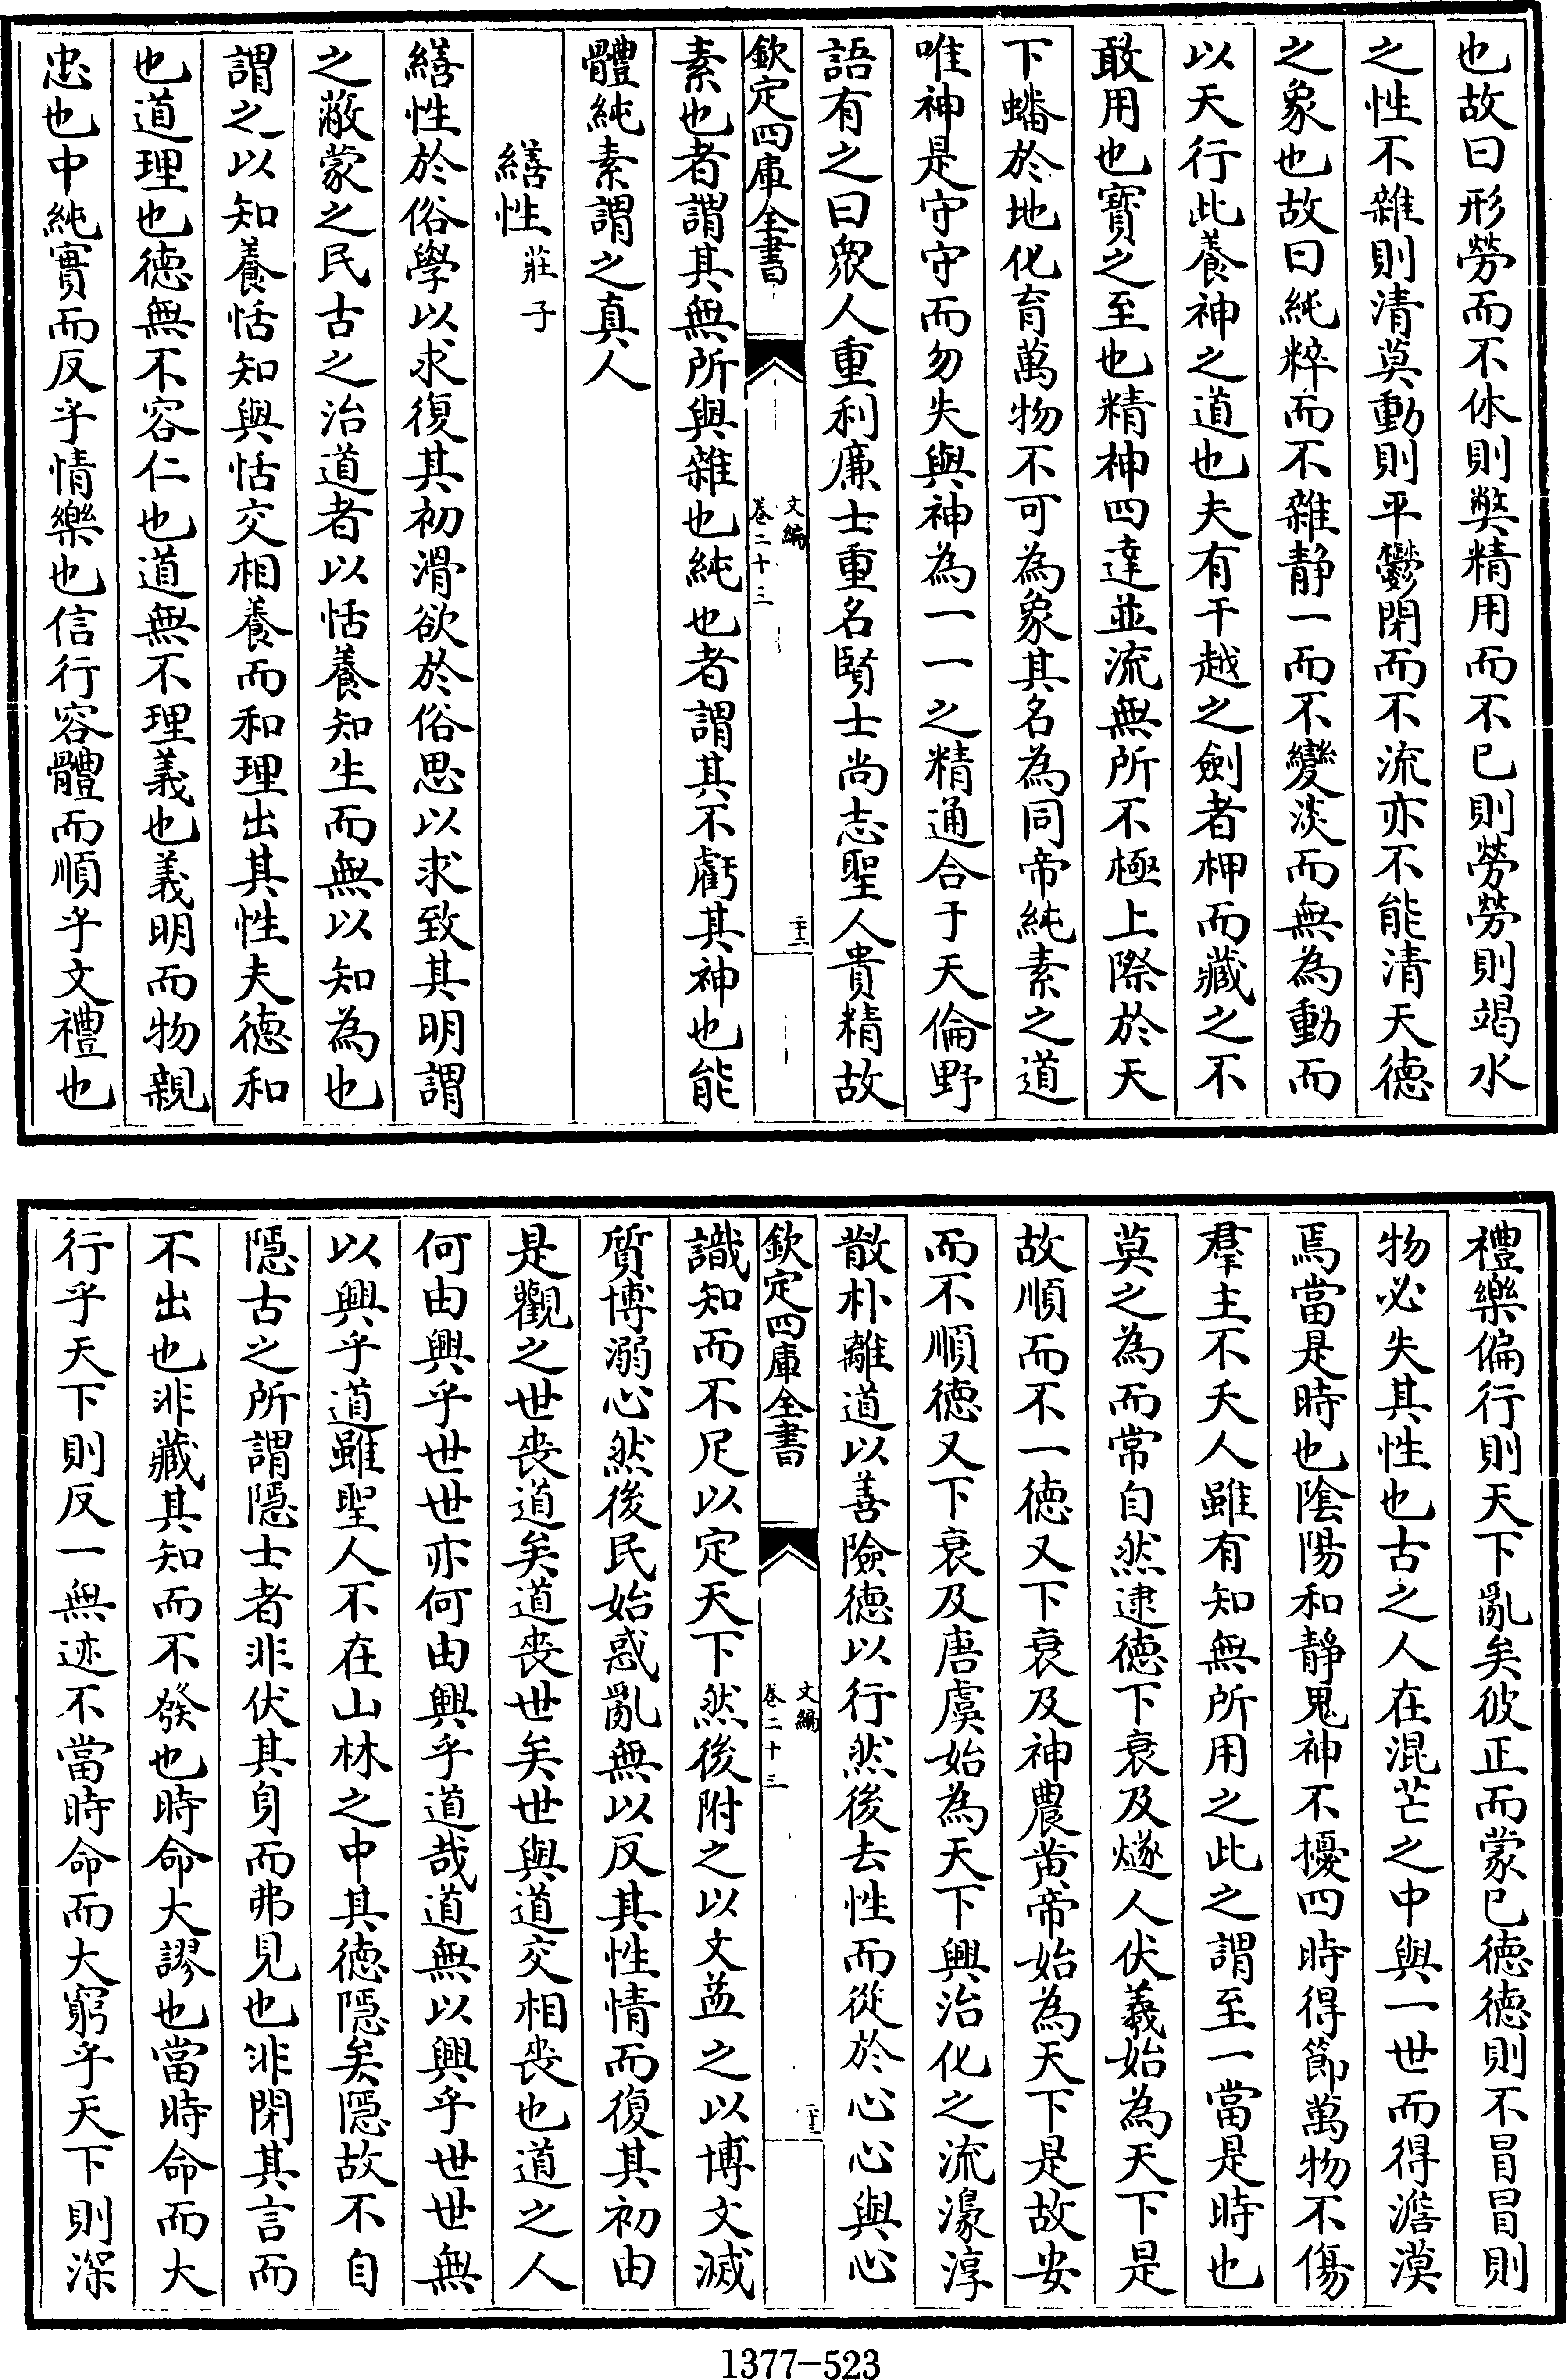 也故曰形勞而不休則弊精用而不已則勞勞則竭水
之性不雜則清莫動則平鬱閉而不流亦不能清天德
之象也故曰純粹而不雜静一而不變淡而無為動而
以天行此養神之道也夫有干越之劍者柙而藏之不
敢用也寳之至也精神四達並流無所不極上際於天
下蟠於地化育萬物不可為象其名為同帝純素之道
唯神是守守而勿失與神為一一之精通合于天倫野
語有之曰衆人重利廉士重名賢士尚志聖人貴精故
欽定四庫全書
文編
卷二十三
二十三
素也者謂其無所與雜也純也者謂其不虧其神也能
體純素謂之真人
繕性莊子
繕性於俗學以求復其初滑欲於俗思以求致其明謂
之蔽蒙之民古之治道者以恬養知生而無以知為也
謂之以知養恬知與恬交相養而和理出其性夫徳和
也道理也徳無不容仁也道無不理義也義明而物親
忠也中純實而反乎情樂也信行容體而順乎文禮也
禮樂偏行則天下亂矣彼正而蒙已徳徳則不冒冒則
物必失其性也古之人在混芒之中與一世而得澹漠
焉當是時也陰陽和靜鬼神不擾四時得節萬物不傷
羣生不夭人雖有知無所用之此之謂至一當是時也
莫之為而常自然逮徳下衰及燧人伏羲始為天下是
故順而不一徳又下衰及神農黄帝始為天下是故安
而不順徳又下衰及唐虞始為天下興治化之流濠淳
散朴離道以善險徳以行然後去性而從於心心與心
欽定四庫全書
文編
卷二十三
識知而不足以定天下然後附之以文益之以博文滅
質博溺心然後民始惑亂無以反其性情而復其初由
是觀之世喪道矣道喪世矣世與道交相喪也道之人
何由興乎世世亦何由興乎道哉道無以興乎世世無
以興乎道雖聖人不在山林之中其徳隱矣隱故不自
隱古之所謂隱士者非伏其身而弗見也非閉其言而
不出也非藏其知而不發也時命大謬也當時命而大
行乎天下則反一無迹不當時命而大窮乎天下則深
1377-523